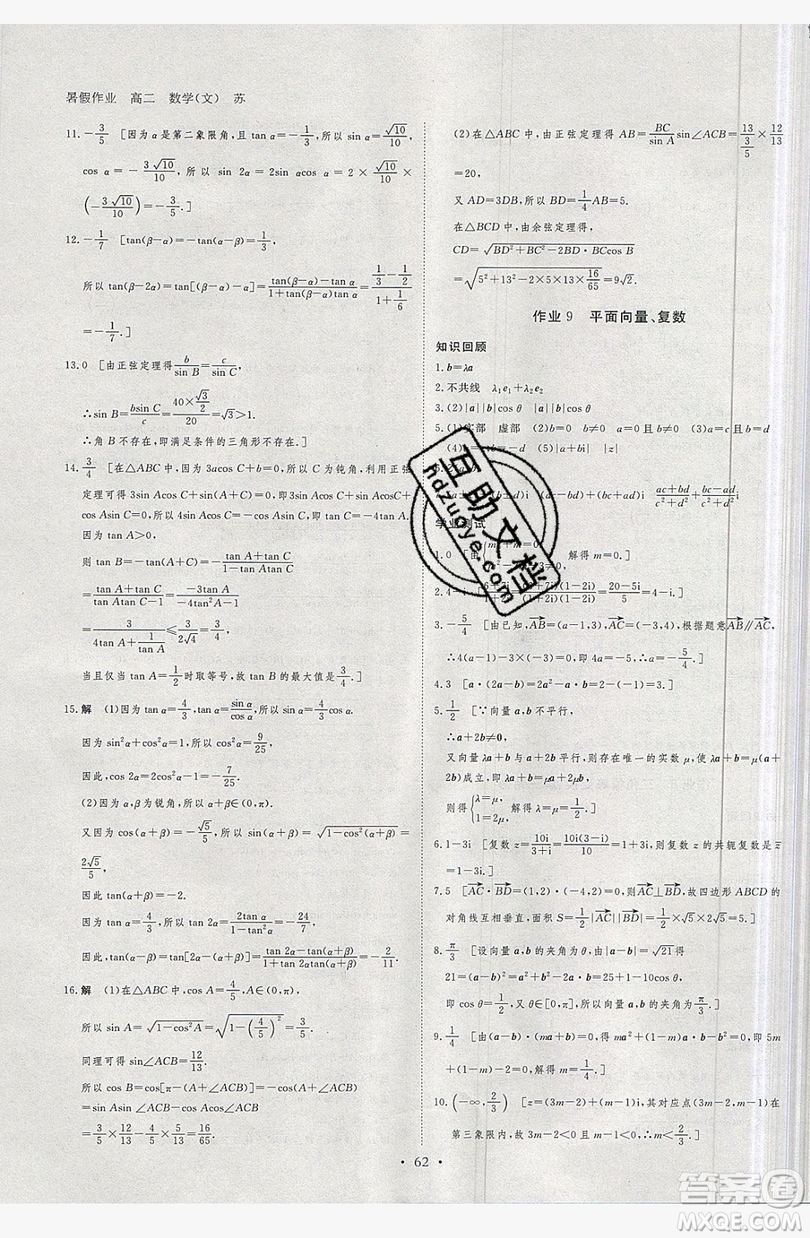 暑假作业 高二 数学(文) 苏
11.-3/5 [因为 α 是第二象限角,且 tan α=-1/3,所以 sin α=√10/10,
cos α=-3√10/10,所以 sin 2α=2sin αcos α=2×√10/10×
(-3√10/10)=-3/5.]
12.-1/7 [tan(β-α)=-tan(α-β)=1/3,
所以 tan(β-2α)=tan[(β-α)-α]=(tan(β-α)-tan α)/(1+tan(β-α)tan α)=(1/3-1/2)/(1+1/6)
=-1/7.]
13.0 [由正弦定理得 b/sin B=c/sin C,
∴sin B=bsin C/c=(40×√3/2)/20=√3>1.
∴角 B 不存在,即满足条件的三角形不存在.]
14.3/4 [在△ABC 中,因为 3acos C+b=0,所以 C 为钝角,利用正弦
定理可得 3sin Acos C+sin(A+C)=0,即 4sin Acos C+
cos Asin C=0,所以 4tan A=-tan C,即 tan C=-4tan A.因为
tan A>0,
则 tan B=-tan(A+C)=-(tan A+tan C)/(1-tan Atan C)
=(tan A+tan C)/(tan Atan C-1)=-3tan A/(-4tan²A-1)
=3/(4tan A+1/tan A)≤3/(2√4)=3/4,
当且仅当 tan A=1/2时取等号,故 tan B 的最大值是3/4.]
15.解 (1)因为 tan α=4/3,tan α=sin α/cos α,所以 sin α=4/3cos α.
因为 sin²α+cos²α=1,所以 cos²α=9/25,
因此,cos 2α=2cos²α-1=-7/25.
(2)因为 α,β 为锐角,所以 α+β∈(0,π).
又因为 cos(α+β)=-√5/5,所以 sin(α+β)=√(1-cos²(α+β))=
2√5/5,
因此 tan(α+β)=-2.
因为 tan α=4/3,所以 tan 2α=2tan α/(1-tan²α)=-24/7,
因此,tan(α-β)=tan[2α-(α+β)]=(tan 2α-tan(α+β))/(1+tan 2αtan(α+β))=-2/11.
16.解 (1)在△ABC 中,cos A=4/5,A∈(0,π),
所以 sin A=√(1-cos²A)=√(1-(4/5)²)=3/5.
同理可得 sin∠ACB=12/13.
所以 cos B=cos[π-(A+∠ACB)]=-cos(A+∠ACB)
=sin Asin∠ACB-cos Acos∠ACB
=3/5×12/13-4/5×5/13=16/65.
(2)在△ABC 中,由正弦定理得 AB=BC/sin A sin∠ACB=13/(3/5)×12/13
=20,
又 AD=3DB,所以 BD=1/4AB=5.
在△BCD 中,由余弦定理得
CD=√(BD²+BC²-2BD·BCcos B)
=√(5²+13²-2×5×13×16/65)=9√2.
作业 9 平面向量、复数
知识回顾
1.b=λa
2.不共线 λ₁e₁+λ₂e₂
3.(2)|a||b|cos θ |b|cos θ
5.(1)实部 虚部 (2)b=0 b≠0 a=0 b≠0 (3)a=c
(4)a=c,b=-d (5)|a+bi| |z|
(ac+bd)/(c²+d²)+(bc-ad)/(c²+d²)i
学业测试
解得 m=0.]
=(20-5i)/5=4-i.]
3.-5/4 [由已知,AB=(a-1,3),AC=(-3,4),根据题意AB∥AC,
∴4(a-1)-3×(-3)=0,即 4a=-5,∴a=-5/4.]
5.1/2 [∵向量 a,b 不平行,
∴a+2b≠0,
又向量 λa+b 与 a+2b 平行,则存在唯一的实数 μ,使 λa+b=μ(a+
2b)成立,即 λa+b=μa+2μb,
则得{λ=μ,1=2μ,解得 λ=μ=1/2.]
6.1-3i [复数 z=10i/(3+i)=10i(3-i)/((3+i)(3-i))=1+3i,则复数 z 的共轭复数 z̄
=1-3i.]
7.5 [AC·BD=(1,2)·(-4,2)=0,所以AC⊥BD,故四边形 ABCD 的
对角线互相垂直,面积 S=1/2|AC||BD|=1/2×√5×2√5=5.]
9.1/4
10.(-∞,2/3) [z=(3m-2)+(m-1)i,其对应点(3m-2,m-1)在
第三象限内,故 3m-2<0 且 m-1<0,∴m<2/3.]
• 62 •
互助文档
hdzuoye.com
答案圈
MXQE.COM